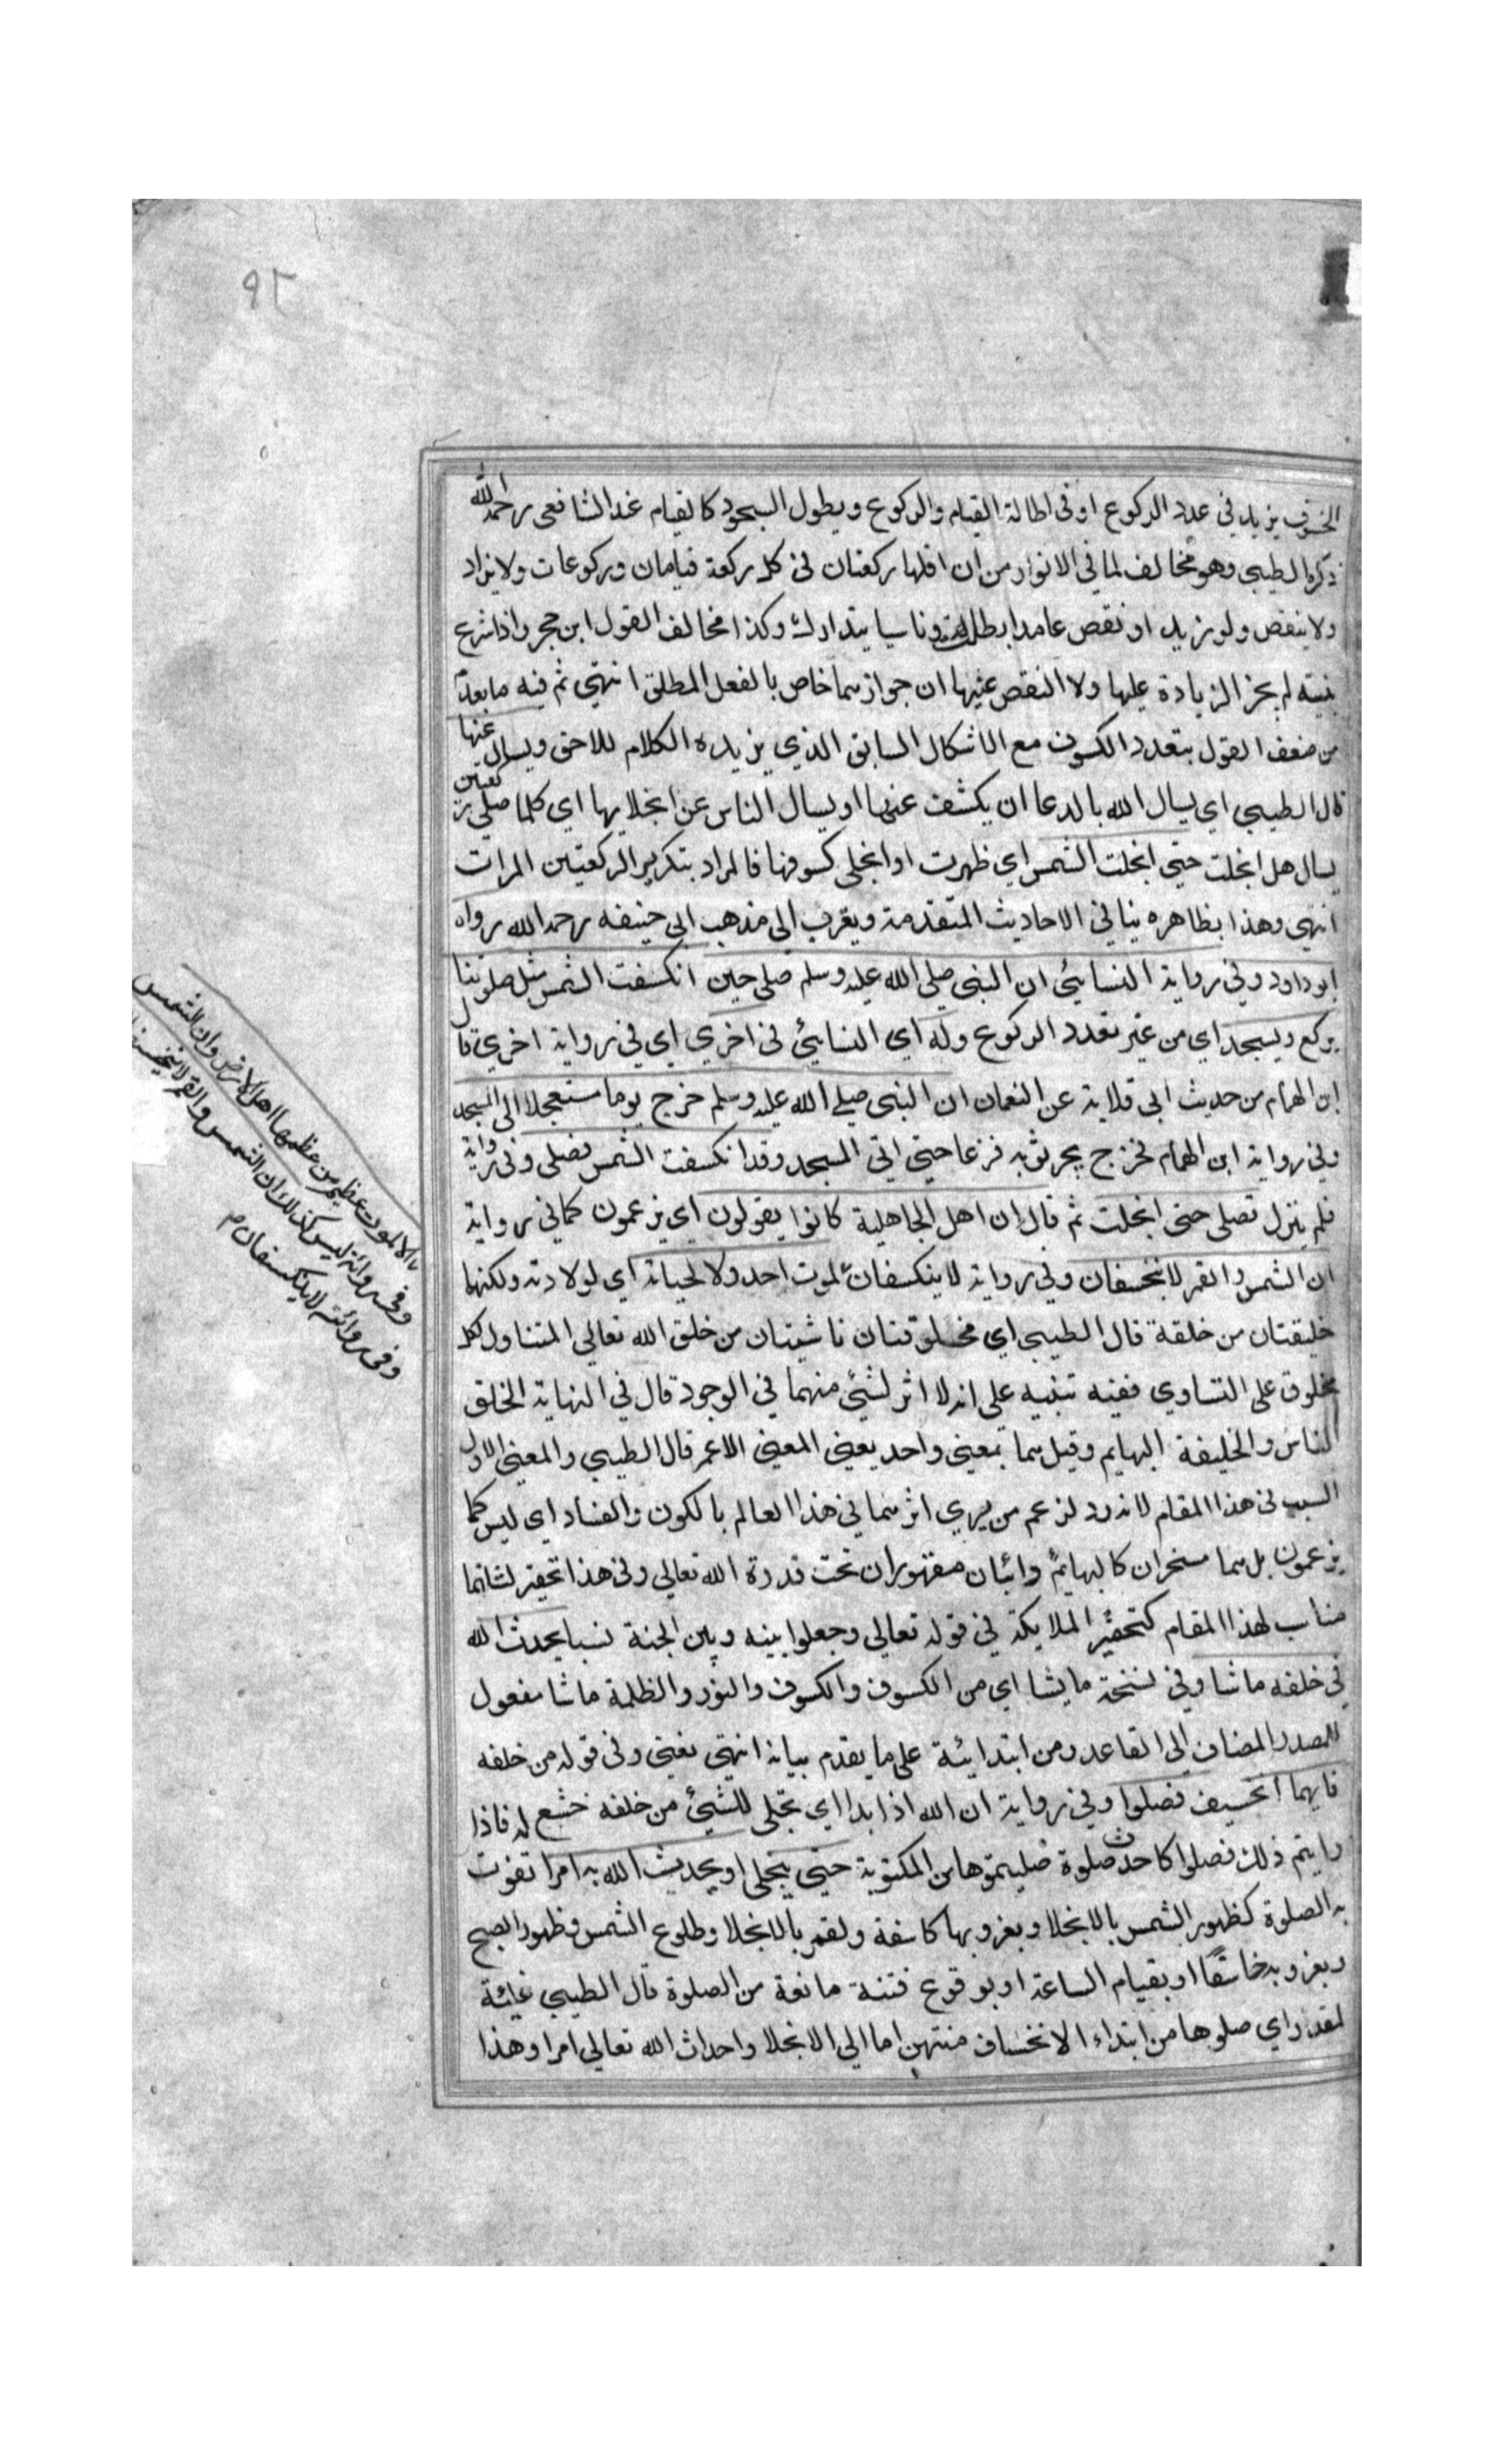 ٩٢
الخسوف يزيد في عدد الركوع او في اطالة القيام والركوع ويطول السجود كالقيام عند الشافعي رحمه الله
ذكره الطيبي وهو مخالف لما في الانوار من ان اقلها ركعتان في كل ركعة قيامان وركوعات ولا يزاد
ولا ينقص ولو زيد او نقص عامدا بطلت وناسيا يتدارك وكذا مخالف القول ابن حجر واذا شرع
بنيته لم يجز الزيادة عليها ولا النقص عنها ان جوازهما خاص بالفعل المطلق انتهي ثم فيه ما بعد
من ضعف القول بتعدد الكسوف مع الاشكال السابق الذي يزيده الكلام للاحق ويسال عنها
قال الطيبي اي يسال الله بالدعا ان يكشف عنها او يسال الناس عن انجلايها اي كلما صلي ركعتين
يسال هل انجلت حتي انجلت الشمس اي ظهرت او انجلي كسوفها فالمراد بتكرير الركعتين المرات
انتهي وهذا بظاهره ينافي الاحاديث المتقدمة ويقرب الي مذهب ابي حنيفه رحمه الله رواه
ابو داود وفي رواية النسائي ان النبي صلي الله عليه وسلم صلي حين انكسفت الشمس مثل صلوتنا
يركع ويسجد اي من غير تعدد الركوع وله اي النسائي في اخري اي في رواية اخري قال
ابن الهمام من حديث ابي قلابة عن النعمان ان النبي صلي الله عليه وسلم خرج يوما مستعجلا الي المسجد
وفي رواية ابن الهمام فخرج يجر ثوبه فزعا حتي اتي المسجد وقد انكسفت الشمس فصلي وفي رواية
فلم ينزل تصلي حتي انجلت ثم قال ان اهل الجاهلية كانوا يقولون اي يزعمون كما في رواية
ان الشمس والقمر لا ينخسفان وفي رواية لا ينكسفان لموت احد ولا لحياته اي لولادته ولكنها
خليقتان من خلقة قال الطيبي اي مخلوقتان ناشيتان من خلق الله تعالي المتناول لكل
مخلوق علي التساوي ففيه تنبيه علي انه لا اثر لشئ منهما في الوجود قال في النهاية الخلق
الناس والخليقة البهايم وقيل هما بمعني واحد يعني المعني الاعم قال الطيبي والمعني الاول
السبب في هذا المقام لانه رد لزعم من يري اثرهما في هذا العالم بالكون والفساد اي ليس كما
يزعمون بل هما مسخران كالبهايم وائبان مقهوران تحت قدرة الله تعالي وفي هذا تحقير لشانهما
مناسب لهذا المقام كتحقير الملايكة في قوله تعالي وجعلوا بينه وبين الجنة نسبا يحدث الله
في خلقه ما شا وفي نسخة ما يشا اي من الكسوف والكسوف والنور والظلمة ما شا مفعول
للمصدر المضاف الي القاعد ومن ابتدايئة علي ما يقدم بيانه انتهي نعيني وفي قوله من خلقه
فايهما انخسف فصلوا وفي رواية ان الله اذا بدا اي تجلي للشيئ من خلقه خشع له فاذا
رايتم ذلك فصلوا كاحدث صلوة صليتموها من المكتوبة حتي ينجلي او يحدث الله به امرا تفوت
به الصلوة كظهور الشمس بالانجلا وبغروبها كاسفة ولقمر بالانجلا وطلوع الشمس وظهور الصبح
وبغروبه خاسفا او بقيام الساعة او بوقوع فتنة مانعة من الصلوة قال الطيبي غايئة
لمقدار اي صلوها من ابتداء الانخساف منتهين اما الي الانجلا واحداث الله تعالي امرا وهذا
الا لموت عظيم من عظمها اهل الارض وان الشمس
وفي رواية ليس كذلك ان الشمس والقمر لا ينخسفان
وفي روائة لا ينكسفان م